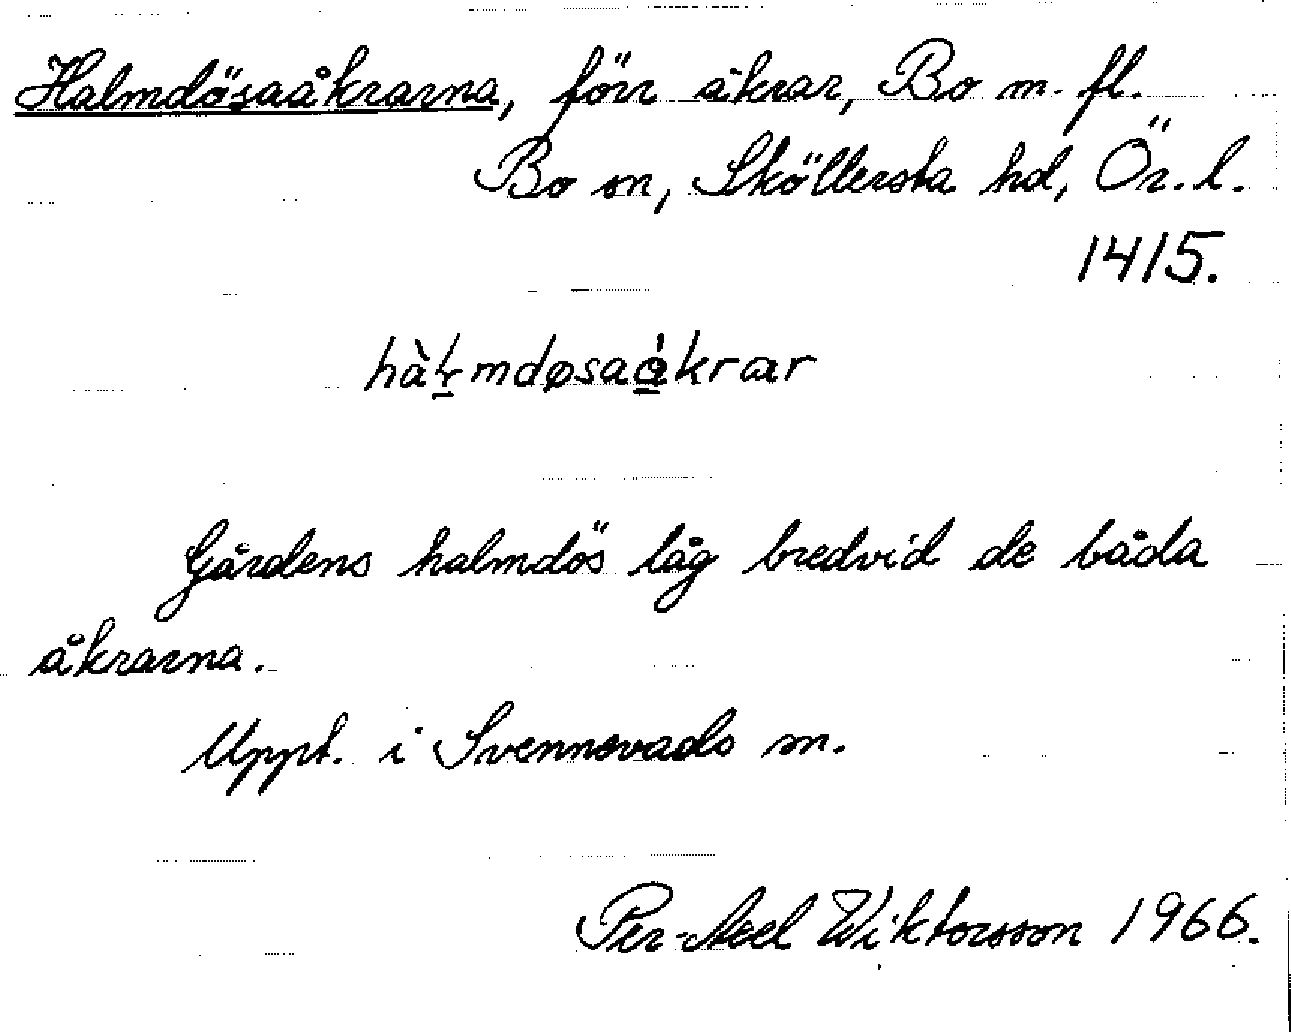 Halmdösaåkrarna, förr åkrar, Bo m. fl.
Bo sn, Sköllersta hd, Ör. l.
1415.
hàl̠mdøsaǻ̠krar
Gårdens halmdös låg bredvid de båda
åkrarna.
Uppt. i Svennevads sn.
Per-Axel Wiktorsson 1966.